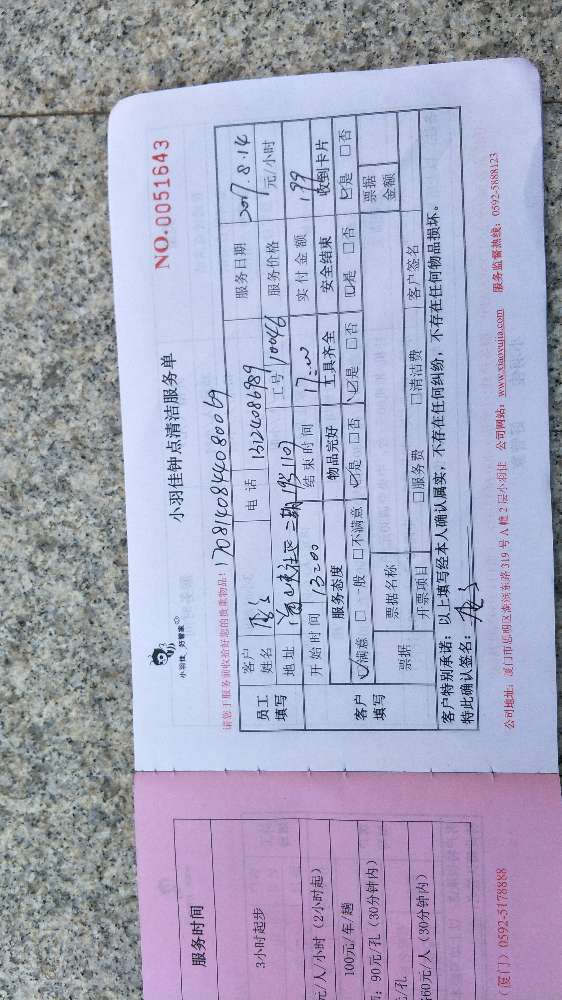 小羽佳钟点清洁服务单
NO.0051643
小羽佳 好管家
请您于服务前收拾好您的贵重物品: 1708140844080069
员工填写
客户姓名
电话 13124086989
服务日期 2017.8.14
地址 二期
工号 10046
服务价格 元/小时
开始时间 13:00
结束时间 17:00
实付金额 199
客户填写
服务态度 物品完好 工具齐全 安全结束 收到卡片
☑满意 □一般 □不满意 ☑是 □否 ☑是 □否 ☑是 □否 ☑是 □否
票据 票据名称 票据金额
开票项目 □服务费 □清洁费 客户签名
客户特别承诺: 以上填写经本人确认属实,不存在任何纠纷,不存在任何物品损坏。
特此确认签名:
公司地址: 厦门市思明区 319号A幢2层小羽佳 公司网站: www.xiaoyujia.com 服务监督热线: 0592-5888123
服务时间
3小时起步
元/人/小时(2小时起)
100元/年/趟
: 90元/孔(30分钟内)
/孔
60元/人(30分钟内)
(厦门) 0592-5178888